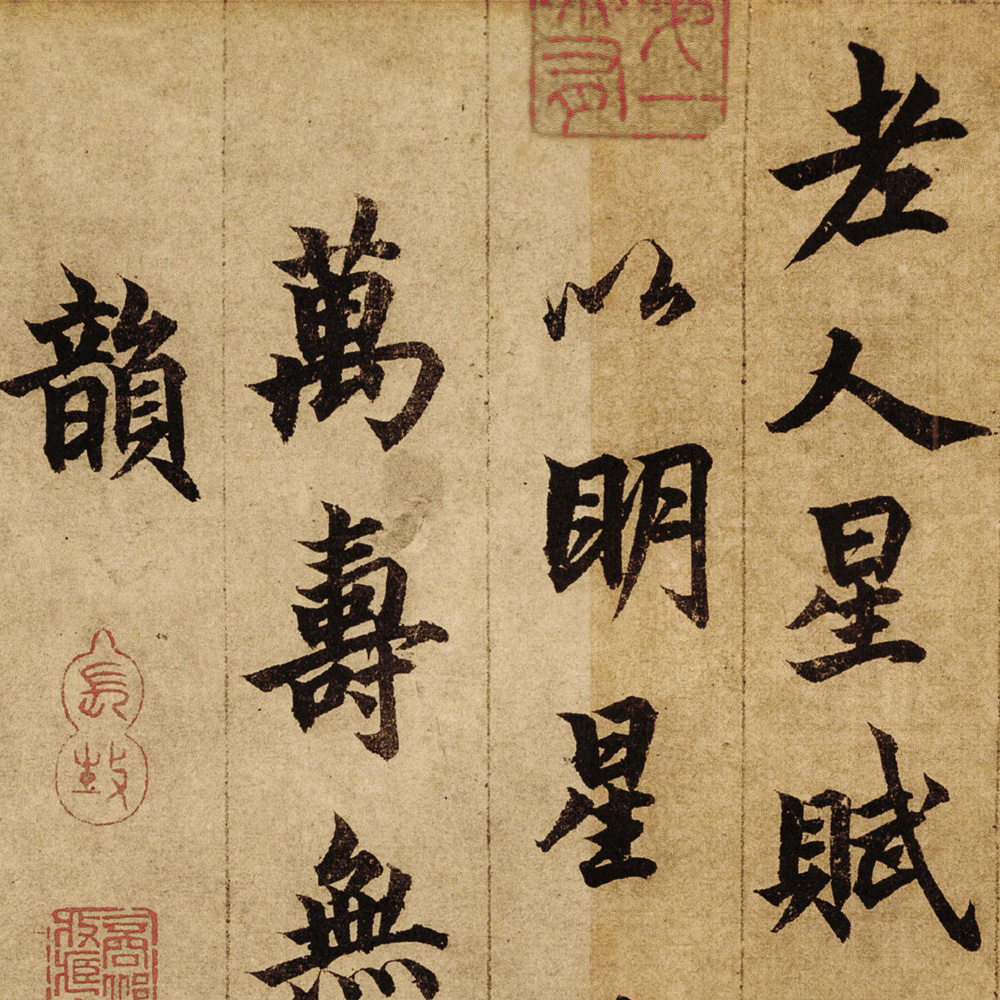 老人星賦
以明星
萬壽無
韻